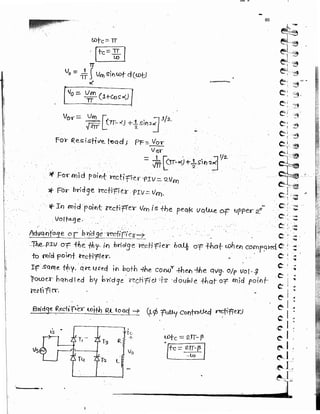 ωtc = π
tc = π/ω
Vo = 1/π ∫ Vm sinωt d(ωt)
Vo = Vm/π (1+cosα)
Vor = Vm/√2π [(π-α) + 1/2 sin2α]^1/2.
For Resistive load; PF = Vor
Vsr
= 1/√π [(π-α) + 1/2 sin2α]^1/2
* For mid point rectifier PIV = 2Vm
* For bridge rectifier PIV = Vm.
* In mid point rectifier Vm is the peak value of upper 2°
Voltage.
Advantage of bridge rectifier →
The PIV of the thy. in bridge rectifier half of that when compared
to mid point rectifier.
If same thy. are used in both the conv then the avg. o/p vol. &
Power handled by bridge rectifier is double that of mid point
rectifier.
Bridge Rectifier with RL load → (1ϕ Fully controlled rectifier)
is
Vs
T1
T3
T4
T2
R
L
+
Vo
-
ωtc = 2π-β
tc = 2π-β/ω